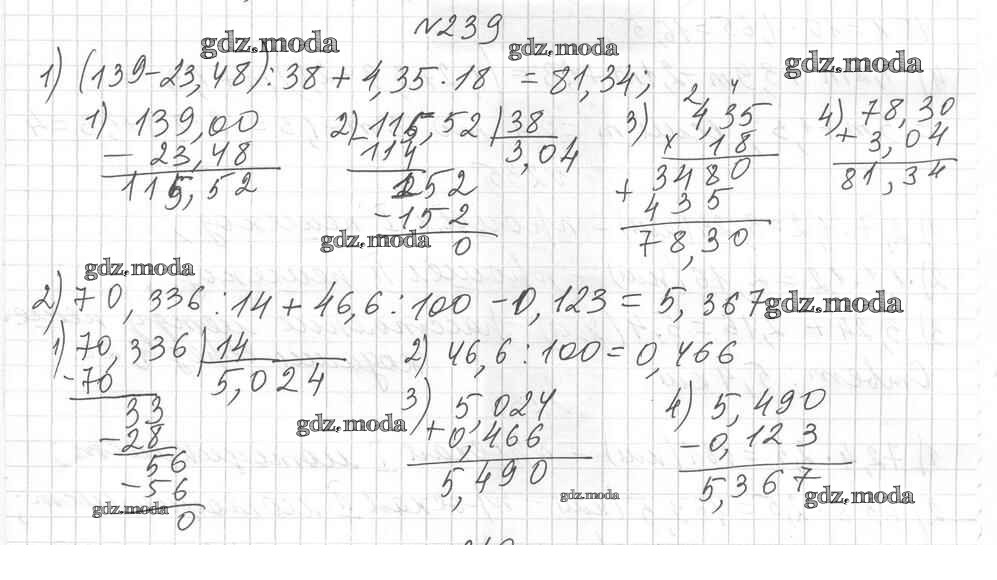 №239
gdz.moda gdz.moda gdz.moda
1) (139-23,48):38+4,35·18 = 81,34;
1) 139,00
- 23,48
115,52
2) 115,52 | 38
- 114 3,04
152
- 152
0
gdz.moda
3) 2 4
4,35
x 18
3480
+ 435
78,30
4) 78,30
+ 3,04
81,34
gdz.moda
2) 70,336:14+46,6:100-0,123 = 5,367
gdz.moda
1) 70,336 | 14
- 70 5,024
33
- 28
56
- 56
0
gdz.moda
2) 46,6:100=0,466
gdz.moda
3) 5,024
+ 0,466
5,490
gdz.moda
4) 5,490
- 0,123
5,367
gdz.moda